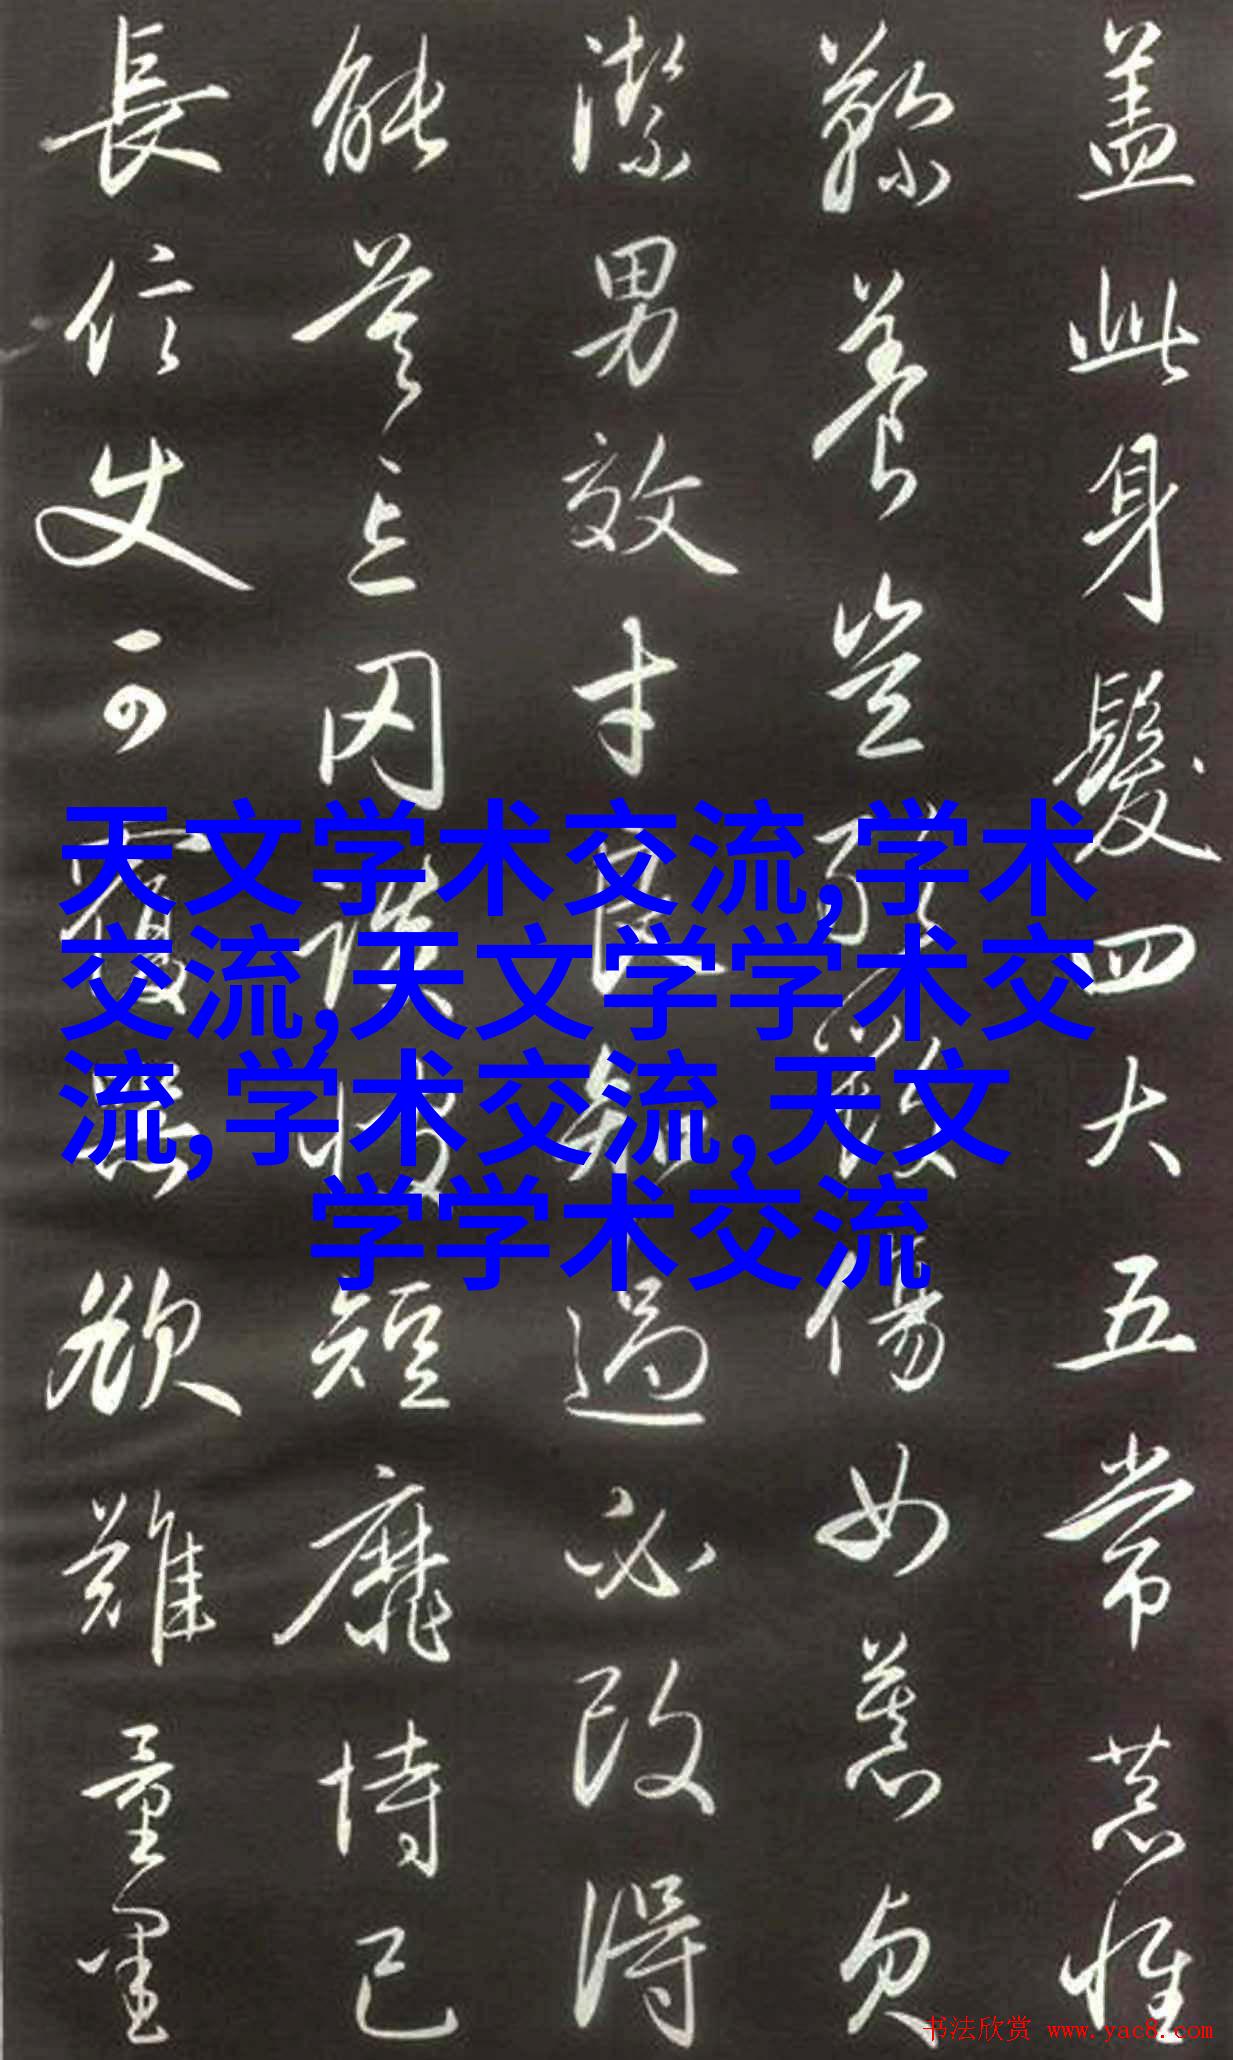 盖此身髮四大五常恭惟
鞠養豈敢毀傷女慕貞
潔男效才良知過必改得
能莫忘罔談彼短靡恃己
長信使可覆器欲難量墨
天文学术交流,学术
交流,天文学学术交
流,学术交流,天文
学学术交流
书法欣赏 www.yac8.com